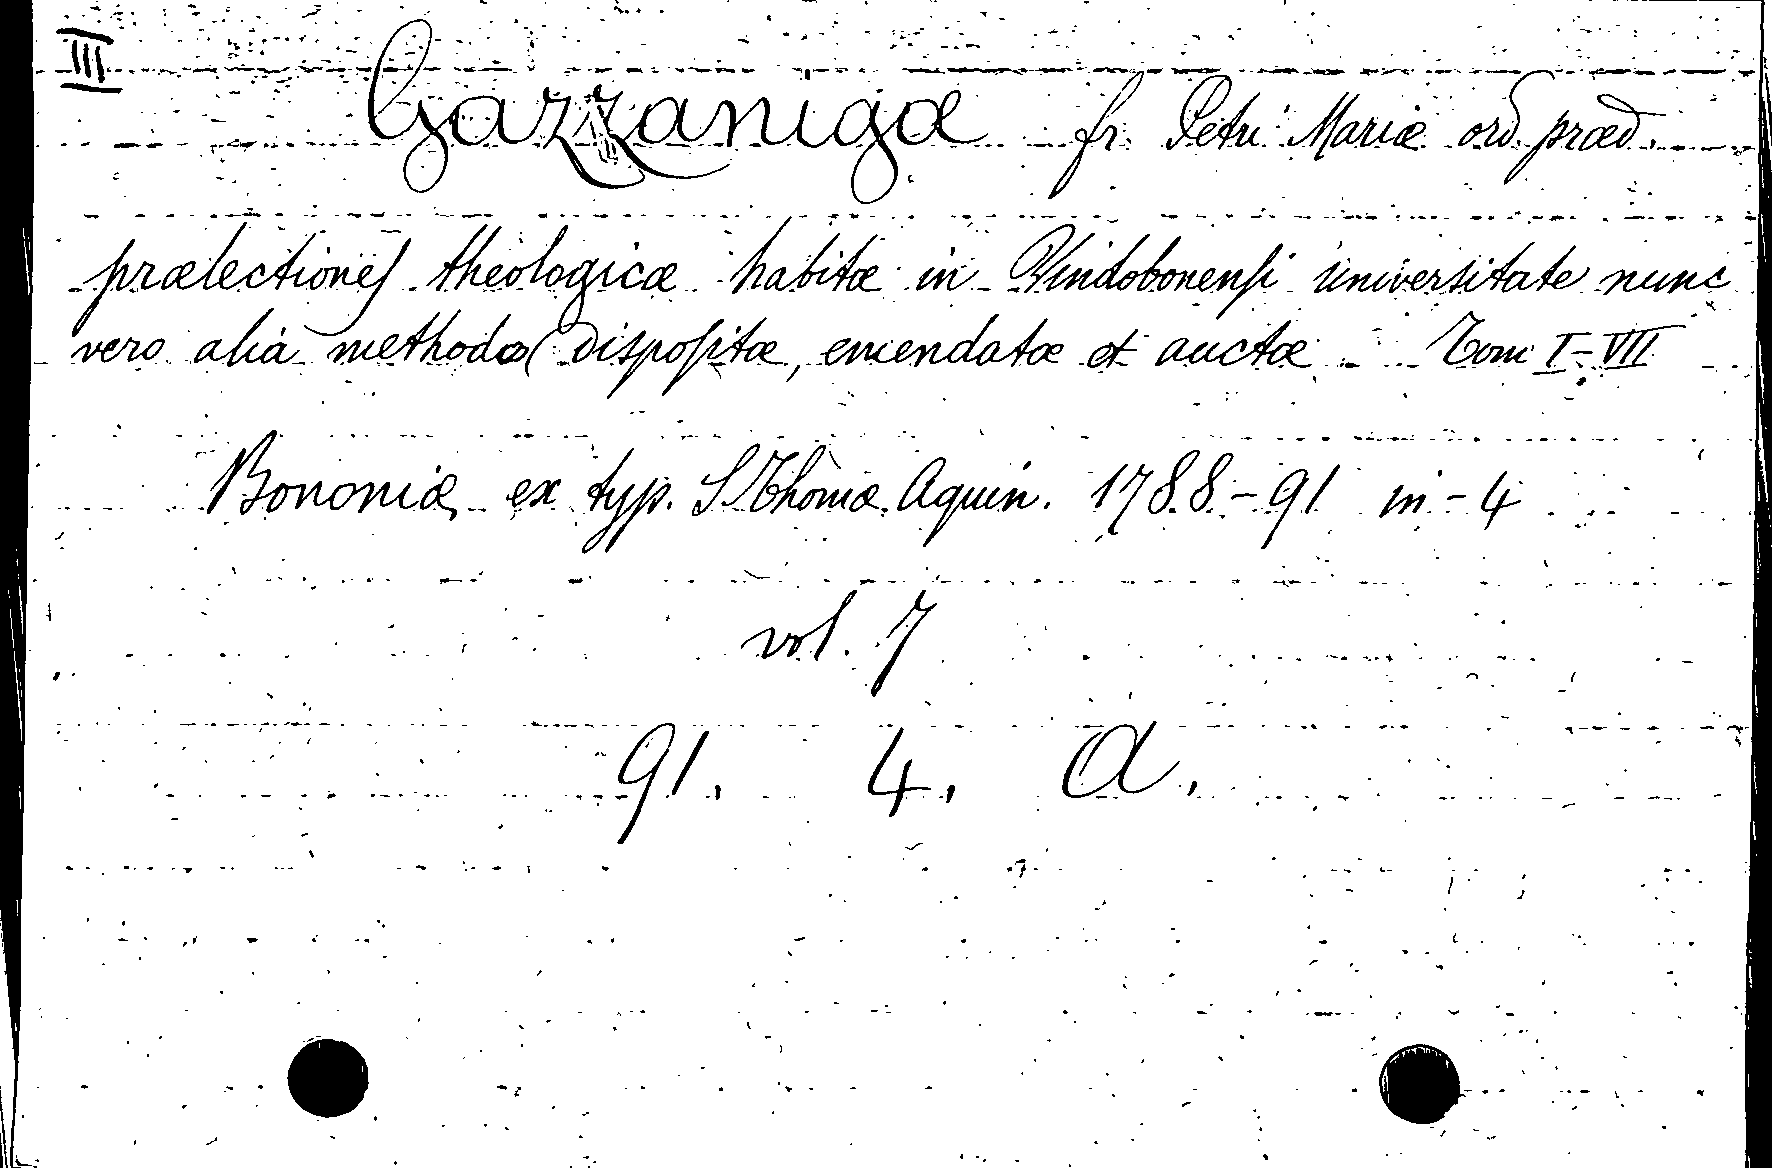 III
Gazzanigæ fr. Petri Mariæ ord. præd.
prælectiones theologicæ habitæ in Vindobonensi universitate nunc
vero alia methodo dispositæ, emendatæ et auctæ. Tom I-VII
Bononiæ ex typ. S. Thomæ Aquin. 1788-91 in-4
vol. 7
91. 4. A.